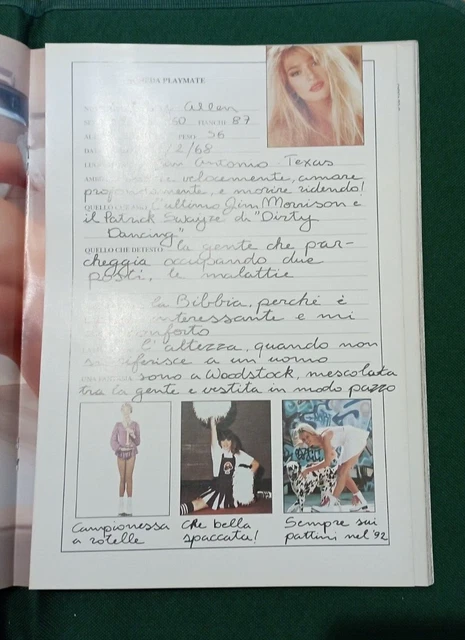 PLAYMATE
Allen
60 FIANCHI 87
PESO 56
/2/68
Antonio Texas
velocemente, amare
profondamente, e morire ridendo!
L'ultimo Jim Morrison e
il Patrick Swayze di "Dirty
Dancing"
QUELLO CHE DETESTO la gente che par-
cheggia occupando due
posti, le malattie
la Bibbia, perché è
interessante e mi
conforto
l'altezza, quando non
si riferisce a un uomo
sono a Woodstock, mescolata
tra la gente e vestita in modo pazzo
Campionessa
a rotelle
Che bella
spaccata!
Sempre sui
pattini nel '92